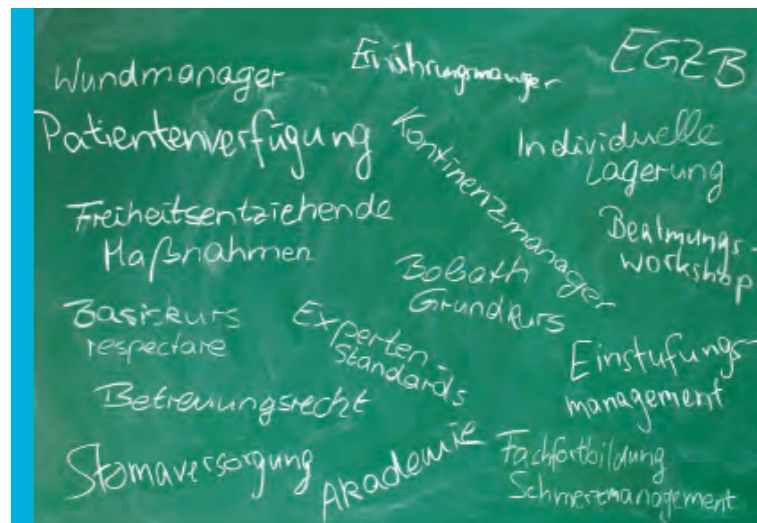 Wundmanager
Ernährungsmanger
EGZB
Patientenverfügung
Kontinenzmanager
Individuelle
Lagerung
Freiheitsentziehende
Maßnahmen
Beatmungs-
workshop
Bobath
Grundkurs
Basiskurs
respectare
Experten-
Standards
Einstufungs-
management
Betreuungsrecht
Stomaversorgung
Akademie
Fachfortbildung
Schmerzmanagement